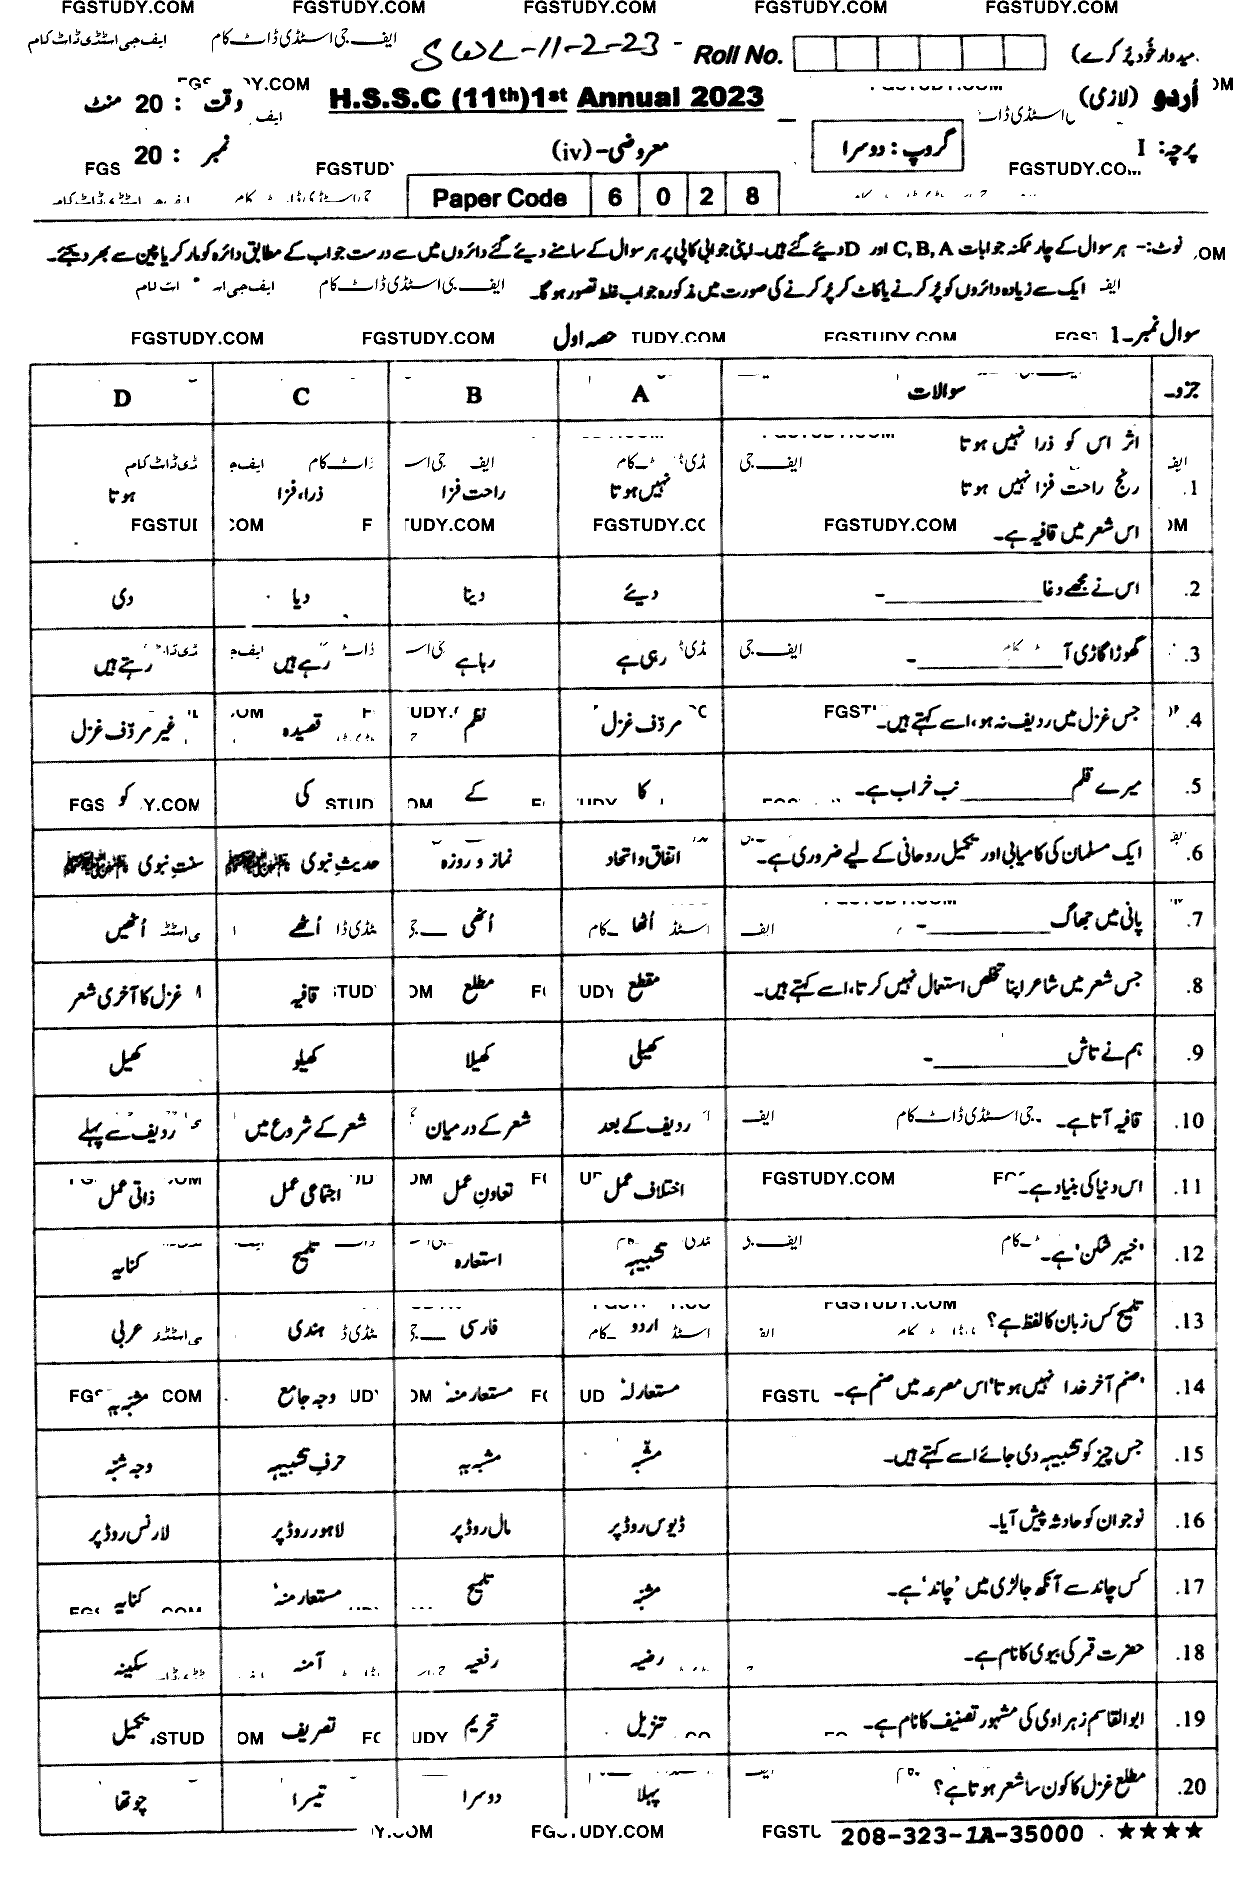 FGSTUDY.COM FGSTUDY.COM FGSTUDY.COM FGSTUDY.COM FGSTUDY.COM
ایف جی اسٹڈی ڈاٹ کام ایف جی اسٹڈی ڈاٹ کام SWL-11-2-23 Roll No. (امیدوار خود پُر کرے)
اُردو (لازمی) H.S.S.C (11th) 1st Annual 2023 وقت : 20 منٹ
پرچہ: I گروپ : دوسرا معروضی-(iv) نمبر : 20
Paper Code 6 0 2 8
نوٹ:- ہر سوال کے چار ممکنہ جوابات C, B, A اور D دیئے گئے ہیں۔ اپنی جوابی کاپی پر ہر سوال کے سامنے دیئے گئے دائروں میں سے درست جواب کے مطابق دائرہ کو مارکر یا پین سے بھر دیجئے۔
ایک سے زیادہ دائروں کو پُر کرنے یا کاٹ کر پُر کرنے کی صورت میں مذکورہ جواب غلط تصور ہوگا۔
سوال نمبر-1 حصہ اول FGSTUDY.COM FGSTUDY.COM
جزو سوالات A B C D
1. اثر اس کو ذرا نہیں ہوتا
رنج راحت فزا نہیں ہوتا نہیں ہوتا راحت فزا ذرا، فزا ہوتا
اس شعر میں قافیہ ہے۔
2. اس نے مجھے دغا ______ ۔ دیئے دینا دیا دی
3. گھوڑا گاڑی آ ______ ۔ رہی ہے رہا ہے رہے ہیں رہتے ہیں
4. جس غزل میں ردیف نہ ہو، اسے کہتے ہیں۔ مردّف غزل نظم قصیدہ غیر مردّف غزل
5. میرے قلم ______ نب خراب ہے۔ کا کے کی کو
6. ایک مسلمان کی کامیابی اور تکمیل روحانی کے لیے ضروری ہے۔ اتفاق و اتحاد نماز و روزہ حدیثِ نبوی ﷺ سنتِ نبوی ﷺ
7. پانی میں جھاگ ______ ۔ اُٹھا اُٹھی اُٹھے اُٹھیں
8. جس شعر میں شاعر اپنا تخلص استعمال نہیں کرتا، اسے کہتے ہیں۔ مقطع مطلع قافیہ غزل کا آخری شعر
9. ہم نے تاش ______ ۔ کھیلی کھیلا کھیلو کھیل
10. قافیہ آتا ہے۔ ردیف کے بعد شعر کے درمیان شعر کے شروع میں ردیف سے پہلے
11. اس دنیا کی بنیاد ہے۔ اختلاف عمل تعاونِ عمل اجتماعی عمل ذاتی عمل
12. 'خیبر شکن' ہے۔ تشبیہہ استعارہ تلمیح کنایہ
13. تلمیح کس زبان کا لفظ ہے؟ اردو فارسی ہندی عربی
14. 'صنم آخر خدا نہیں ہوتا' اس مصرعہ میں صنم ہے۔ مستعار لہٗ مستعار منہٗ وجہ جامع مشبہ بہ
15. جس چیز کو تشبیہہ دی جائے اسے کہتے ہیں۔ مشبّہ مشبہ بہ حرفِ تشبیہہ وجہ شبّہ
16. نوجوان کو حادثہ پیش آیا۔ ڈیوس روڈ پر مال روڈ پر لاہور روڈ پر لارنس روڈ پر
17. کس چاند سے آنکھ جا لڑی میں 'چاند' ہے۔ مشبّہ تلمیح مستعار منہٗ کنایہ
18. حضرت قمر کی بیوی کا نام ہے۔ رضیہ رفعیہ آمنہ سکینہ
19. ابوالقاسم زہراوی کی مشہور تصنیف کا نام ہے۔ تنزیل تحریم تصریف تکمیل
20. مطلع غزل کا کون سا شعر ہوتا ہے؟ پہلا دوسرا تیسرا چوتھا
FGSTUDY.COM 208-323-1A-35000 ★★★★